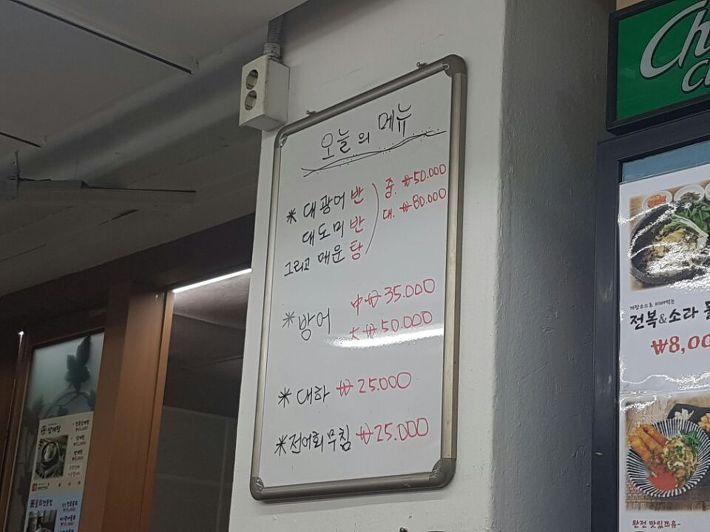 오늘의 메뉴
* 대광어 반 중. ₩50.000
대도미 반 대. ₩80.000
그리고 매운 탕
* 방어 中 ₩35.000
大 ₩50.000
* 대하 ₩25.000
* 전어회무침 ₩25.000
전복&소라
₩8,00
완전 맛있쪄유~